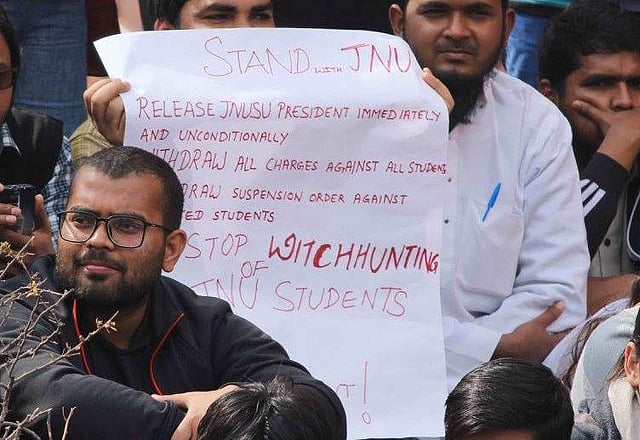 STAND with JNU
RELEASE JNUSU PRESIDENT IMMEDIATELY
AND UNCONDITIONALLY
THDRAW ALL CHARGES AGAINST ALL STUDEN
DRAW SUSPENSION ORDER AGAINST
TED STUDENTS
STOP WITCHHUNTING
OF
JNU STUDENTS
T!